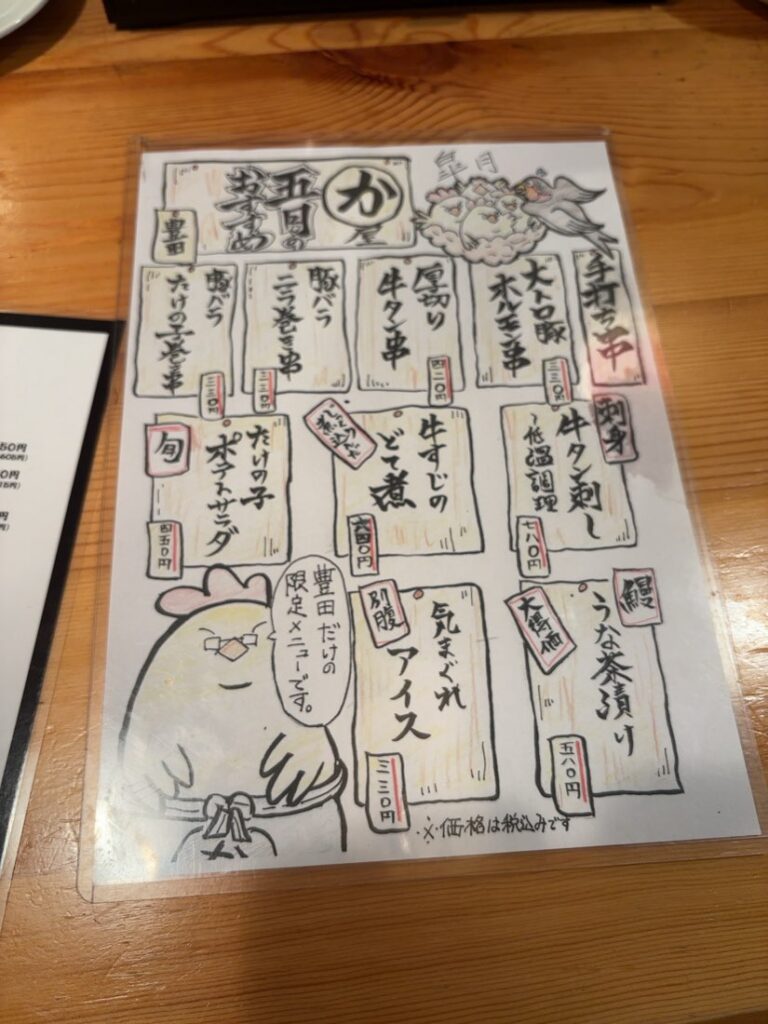 皐月
か
屋
五月の
おすすめ
豊田
手打ち串
大トロ豚
ホルモン串
三三〇円
厚切り
牛タン串
四二〇円
豚バラ
ニラ巻き串
三三〇円
豚バラ
たけの子巻き串
三三〇円
刺身
牛タン刺し
~低温調理
七八〇円
じっくり
煮込んだ
牛すじの
どて煮
六四〇円
旬
たけの子
ポテトサラダ
四五〇円
鰻
大特価
うな茶漬け
五八〇円
別腹
気まぐれ
アイス
三三〇円
豊田だけの
限定メニューです。
か
※価格は税込みです
50円
0円
円